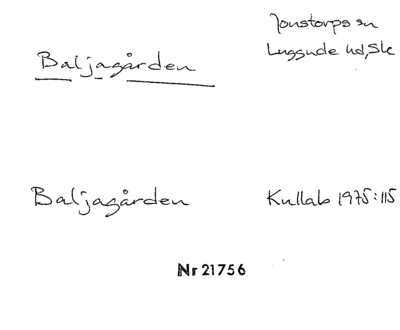 Jonstorps sn
Baljagården
Luggude hd, Sk
Baljagården
Kullab 1975:115
Nr 21756